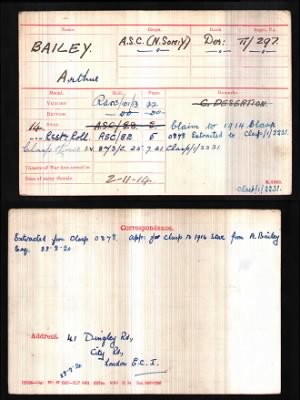 Name. Corps. Rank. Regtl. No.
BAILEY. A.S.C. (N. Som Y) Dvr: T/297.
Arthur
Medal. Roll. Page. Remarks.
VICTORY RASC/101/3 22 G. DESERTION.
BRITISH — do — — do —
14 STAR ASC/2B 6 Claim to 1914 Clasp
Restn Roll. ASC/2B 5 0878 Extracted to Clasp/1/2231.
Clasp 25.7.21. Clasp/1/2231
Theatre of War first served in
Date of entry therein 2-11-14.
Clasp/1/2231.
Correspondence.
Extracted from Clasp 0878. app: for Clasp to 1914 Star from A. Bailey
Esq. 28-8-20
Address. 41 Dingley Rd,
City Rd,
London E.C. 1.
28-8-20